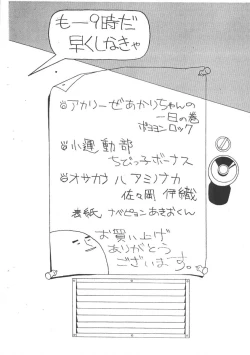 もー9時だ
早くしなきゃ
アカリーゼあかりちゃんの
一日の巻
ポヨヨンロック
小運動部
ちびっ子ボーナス
オサカナハアミノナカ
佐々岡 伊織
表紙 ナペピョンあきおくん
お買い上げ
ありがとう
ございます。